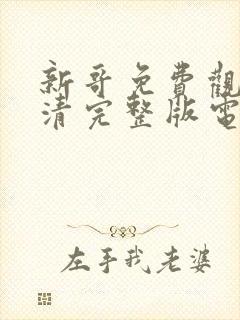 新哥免費觀
清完整版電
左手我老婆